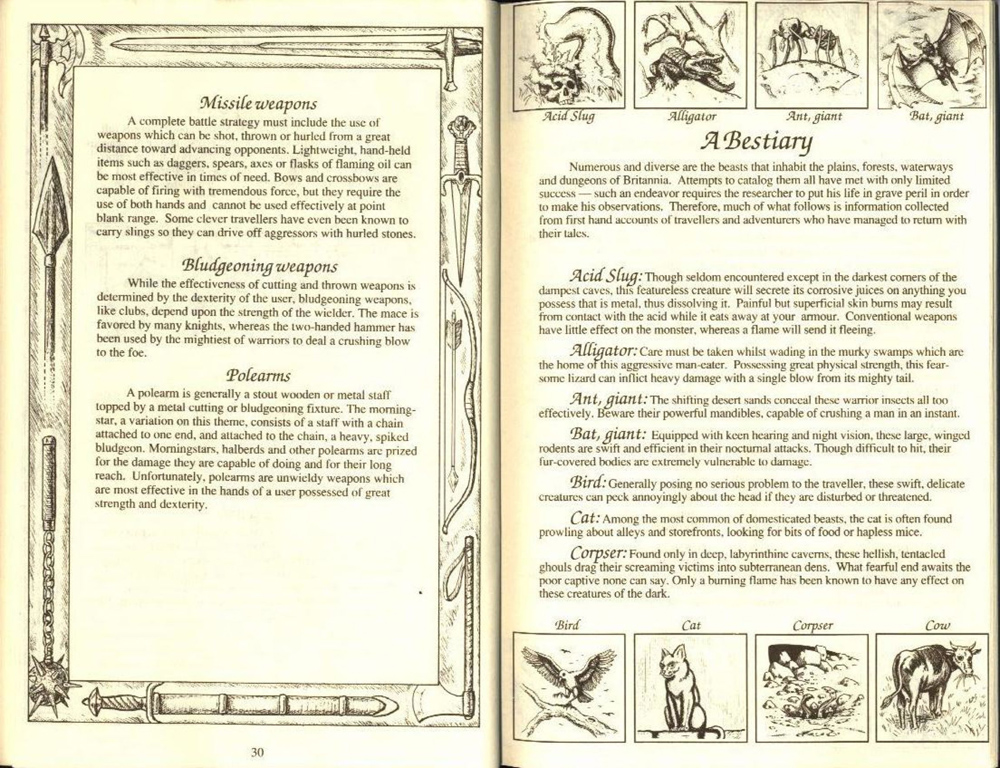 Missile weapons
A complete battle strategy must include the use of
weapons which can be shot, thrown or hurled from a great
distance toward advancing opponents. Lightweight, hand-held
items such as daggers, spears, axes or flasks of flaming oil can
be most effective in times of need. Bows and crossbows are
capable of firing with tremendous force, but they require the
use of both hands and cannot be used effectively at point
blank range. Some clever travellers have even been known to
carry slings so they can drive off aggressors with hurled stones.
Bludgeoning weapons
While the effectiveness of cutting and thrown weapons is
determined by the dexterity of the user, bludgeoning weapons,
like clubs, depend upon the strength of the wielder. The mace is
favored by many knights, whereas the two-handed hammer has
been used by the mightiest of warriors to deal a crushing blow
to the foe.
Polearms
A polearm is generally a stout wooden or metal staff
topped by a metal cutting or bludgeoning fixture. The morning-
star, a variation on this theme, consists of a staff with a chain
attached to one end, and attached to the chain, a heavy, spiked
bludgeon. Morningstars, halberds and other polearms are prized
for the damage they are capable of doing and for their long
reach. Unfortunately, polearms are unwieldy weapons which
are most effective in the hands of a user possessed of great
strength and dexterity.
30
Acid Slug Alligator Ant, giant Bat, giant
A Bestiary
Numerous and diverse are the beasts that inhabit the plains, forests, waterways
and dungeons of Britannia. Attempts to catalog them all have met with only limited
success — such an endeavor requires the researcher to put his life in grave peril in order
to make his observations. Therefore, much of what follows is information collected
from first hand accounts of travellers and adventurers who have managed to return with
their tales.
Acid Slug: Though seldom encountered except in the darkest corners of the
dampest caves, this featureless creature will secrete its corrosive juices on anything you
possess that is metal, thus dissolving it. Painful but superficial skin burns may result
from contact with the acid while it eats away at your armour. Conventional weapons
have little effect on the monster, whereas a flame will send it fleeing.
Alligator: Care must be taken whilst wading in the murky swamps which are
the home of this aggressive man-eater. Possessing great physical strength, this fear-
some lizard can inflict heavy damage with a single blow from its mighty tail.
Ant, giant: The shifting desert sands conceal these warrior insects all too
effectively. Beware their powerful mandibles, capable of crushing a man in an instant.
Bat, giant: Equipped with keen hearing and night vision, these large, winged
rodents are swift and efficient in their nocturnal attacks. Though difficult to hit, their
fur-covered bodies are extremely vulnerable to damage.
Bird: Generally posing no serious problem to the traveller, these swift, delicate
creatures can peck annoyingly about the head if they are disturbed or threatened.
Cat: Among the most common of domesticated beasts, the cat is often found
prowling about alleys and storefronts, looking for bits of food or hapless mice.
Corpser: Found only in deep, labyrinthine caverns, these hellish, tentacled
ghouls drag their screaming victims into subterranean dens. What fearful end awaits the
poor captive none can say. Only a burning flame has been known to have any effect on
these creatures of the dark.
Bird Cat Corpser Cow